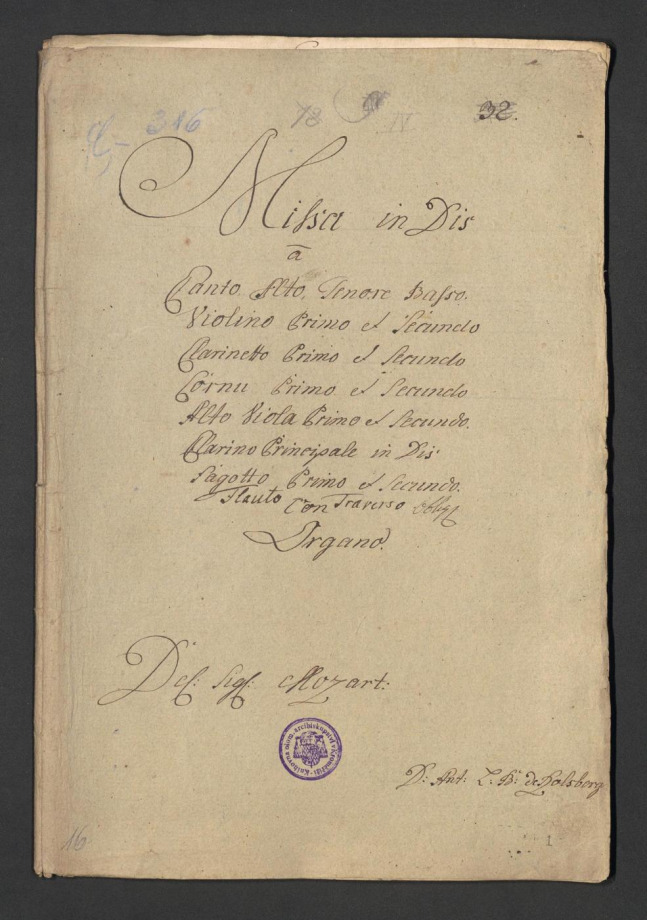 316 78 IV 32.
Missa in Dis
a
Canto. Alto. Tenore Basso.
Violino Primo et Secundo
Clarinetto Primo et Secundo
Cornu Primo et Secundo
Alto Viola Primo et Secundo.
Clarino Principale in Dis
Fagotto Primo et Secundo.
Flauto Traverso obligt
Con
Organo.
Del: Sigl: Mozart:
Knihovna olom. arcibiskupství v Kroměříži
D: Ant: L: B: de
16 1